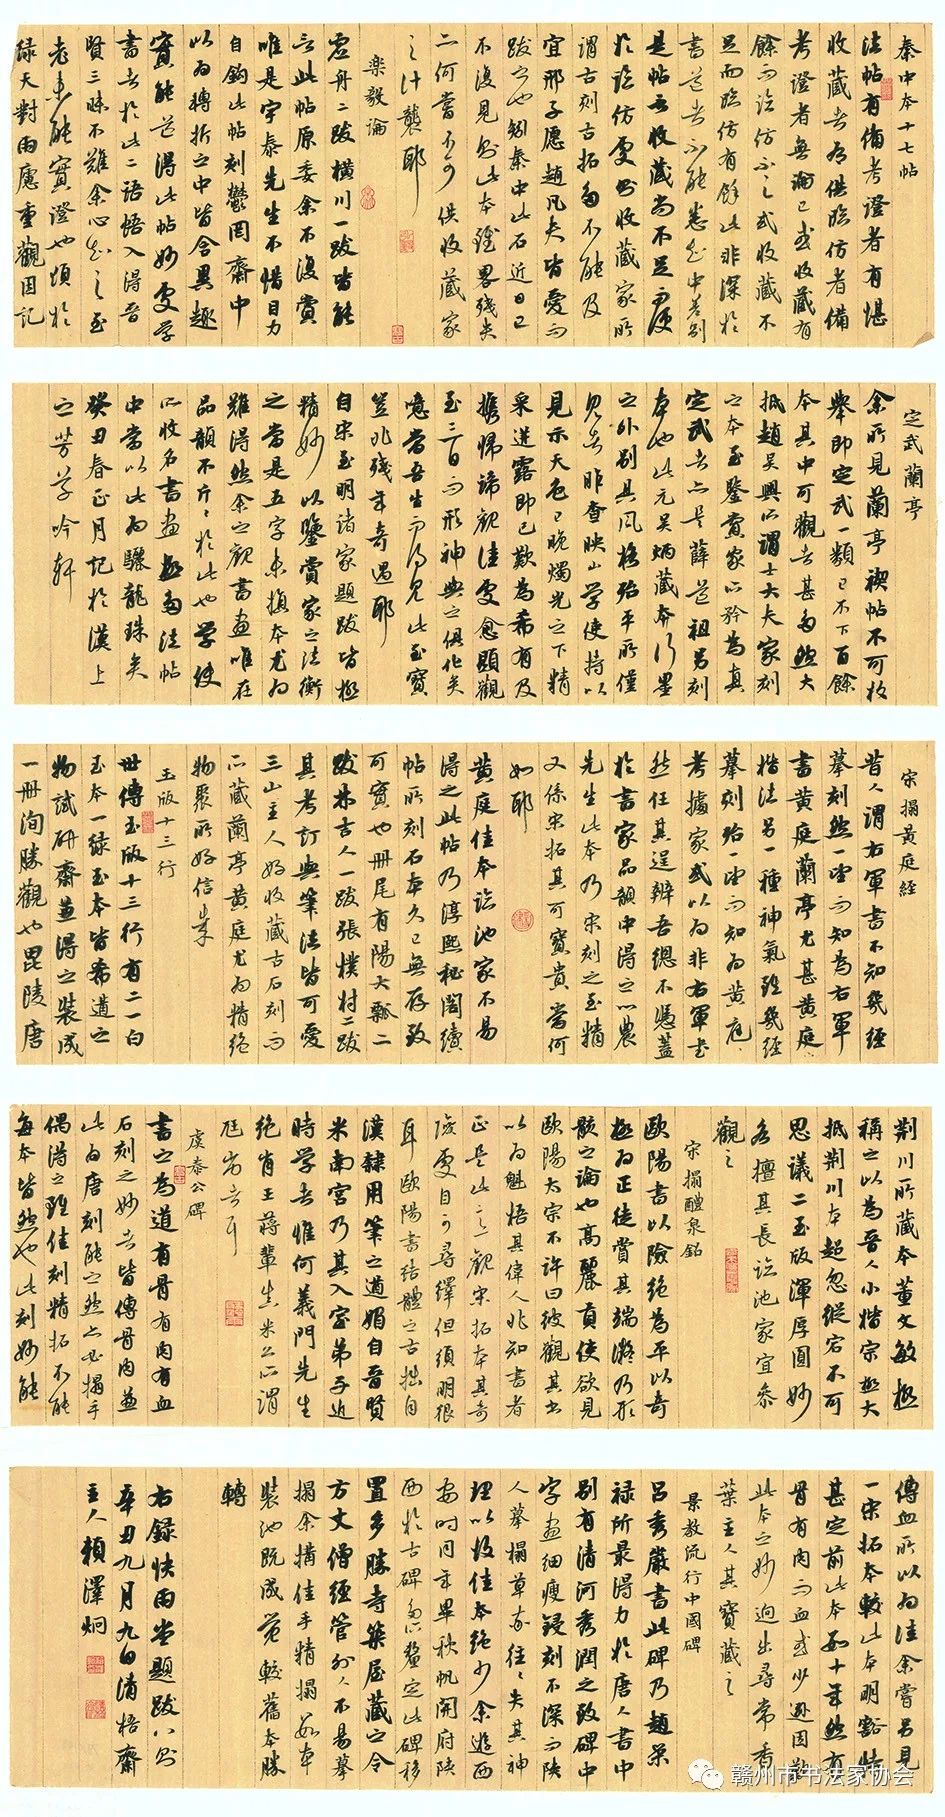 秦中本十七帖
法帖有備考證者有堪
收藏者有供臨仿者備
考證者無論已或收藏有
餘而臨仿不足或收藏不
足而臨仿有餘此非深於
書道者不能悉知中差別
是帖收藏尚不足
於臨仿收藏家所
謂古刻古拓多不能及
宜邢子愿趙凡夫皆愛而
跋之也秦中此石近日已
不復見則此本雖略殘失
何嘗不可供收藏家
之什襲耶
樂毅論
虛舟二跋橫川一跋皆能
言此帖原委余不復贅
唯是宇泰先生不惜目力
自鈎此帖刻鬱岡齋中
以為轉折之中皆含異趣
實能道得此帖妙處學
書者於此二語悟入得晉
賢三昧不難余心知之至
老未能實證也煩於
綠天對雨廬重觀因記
定武蘭亭
余所見蘭亭禊帖不可枚
舉即定武一類已不下百餘
本其中可觀者甚多然大
抵趙吳興所謂士大夫家刻
之本至鑒賞家所矜為真
定武者亦是薛道祖另刻
本也此元吳炳藏本行墨
之外別具風格殆平所僅
見者昨查映山學使持以
見示天色已晚燭光之下精
采迸露即已歎為希有及
攜歸諦觀佳處愈顯觀
至三日而形神與之俱化矣
噫當吾生而得見此至寶
豈非殘年奇遇耶
自宋至明諸家題跋皆極
精妙以鑒賞家之法衡
之當是五字未損本尤為
難得然余之觀書畫唯在
品韻不斤斤於此也學使
所收名書畫極多法帖
中當以此為驪龍珠矣
癸丑春正月記於漢上
之芳草吟軒
宋搨黃庭經
昔人謂右軍書不知幾經
摹刻然一望而知為右軍
書黃庭蘭亭尤甚黃庭
楷法另一種神氣雖幾經
摹刻殆一望而知為黃庭
考據家或以為非右軍書
然任其逞辨吾總不憑蓋
於書家品韻中得之心農
先生此本乃宋刻之至精
又係宋拓其可寶貴當何
如耶
黄庭佳本臨池家不易
得之此帖乃淳熙秘閣續
帖所刻石本久已無存致
可寶也冊尾有陽大瓢二
跋朱古人一跋張樸村二跋
其考訂與筆法皆可愛
三山主人好收藏古石刻而
所藏蘭亭黃庭尤為精絕
物聚所好信哉
玉版十三行
世傳玉版十三行有二一白
玉本一綠玉本皆希遘之
物試研齋並得之裝成
一冊洵勝觀也毘陵唐
荆川所藏本董文敏極
稱之以為晉人小楷宗極大
抵荆川本超忽縱宕不可
思議二玉版渾厚圓妙
各擅其長臨池家宜參
觀之
宋搨醴泉銘
歐陽書以險絕為平以奇
極為正徒賞其端凝乃形
骸之論也高麗貢使欲見
歐陽太宗不許曰彼觀其書
以為魁梧其偉人非知書者
正是此意觀宋拓本其奇
處自可尋繹但須明眼
耳歐陽書結體之古拙自
漢隸用筆之遒媚自晉賢
米南宮乃其入室弟子近
時學者惟何義門先生
絕肖王蔣輩真米公所謂
尫劣者耳
虞恭公碑
書之為道有骨有肉有血
石刻之妙者皆傳骨肉並
此為唐刻能之然亦必搨手
偶得之雖佳刻精拓不能
每本皆然也此刻妙能
傳血所以為佳余嘗另見
一宋拓本較此本明豁特
甚定前此本數十年然有
骨有肉而血或少遜固知
此本之妙迥出尋常香
葉主人其寶藏之
景教流行中國碑
呂秀巖書此碑乃趙榮
祿所最得力於唐人書中
別有清河秀潤之致碑中
字畫細瘦鋟刻不深而陝
人摹搨草率往往失其神
理以故佳本絕少余遊西
安時同年畢秋帆開府陝
西於古碑多所釐定此碑移
置多勝寺築屋藏之令
方丈僧經管外人不易摹
搨余搆佳手精搨數本
裝池既成覺較舊本勝
轉
右錄快雨堂題跋八則
辛丑九月九日清梧齋
主人賴澤炯
赣州市书法家协会